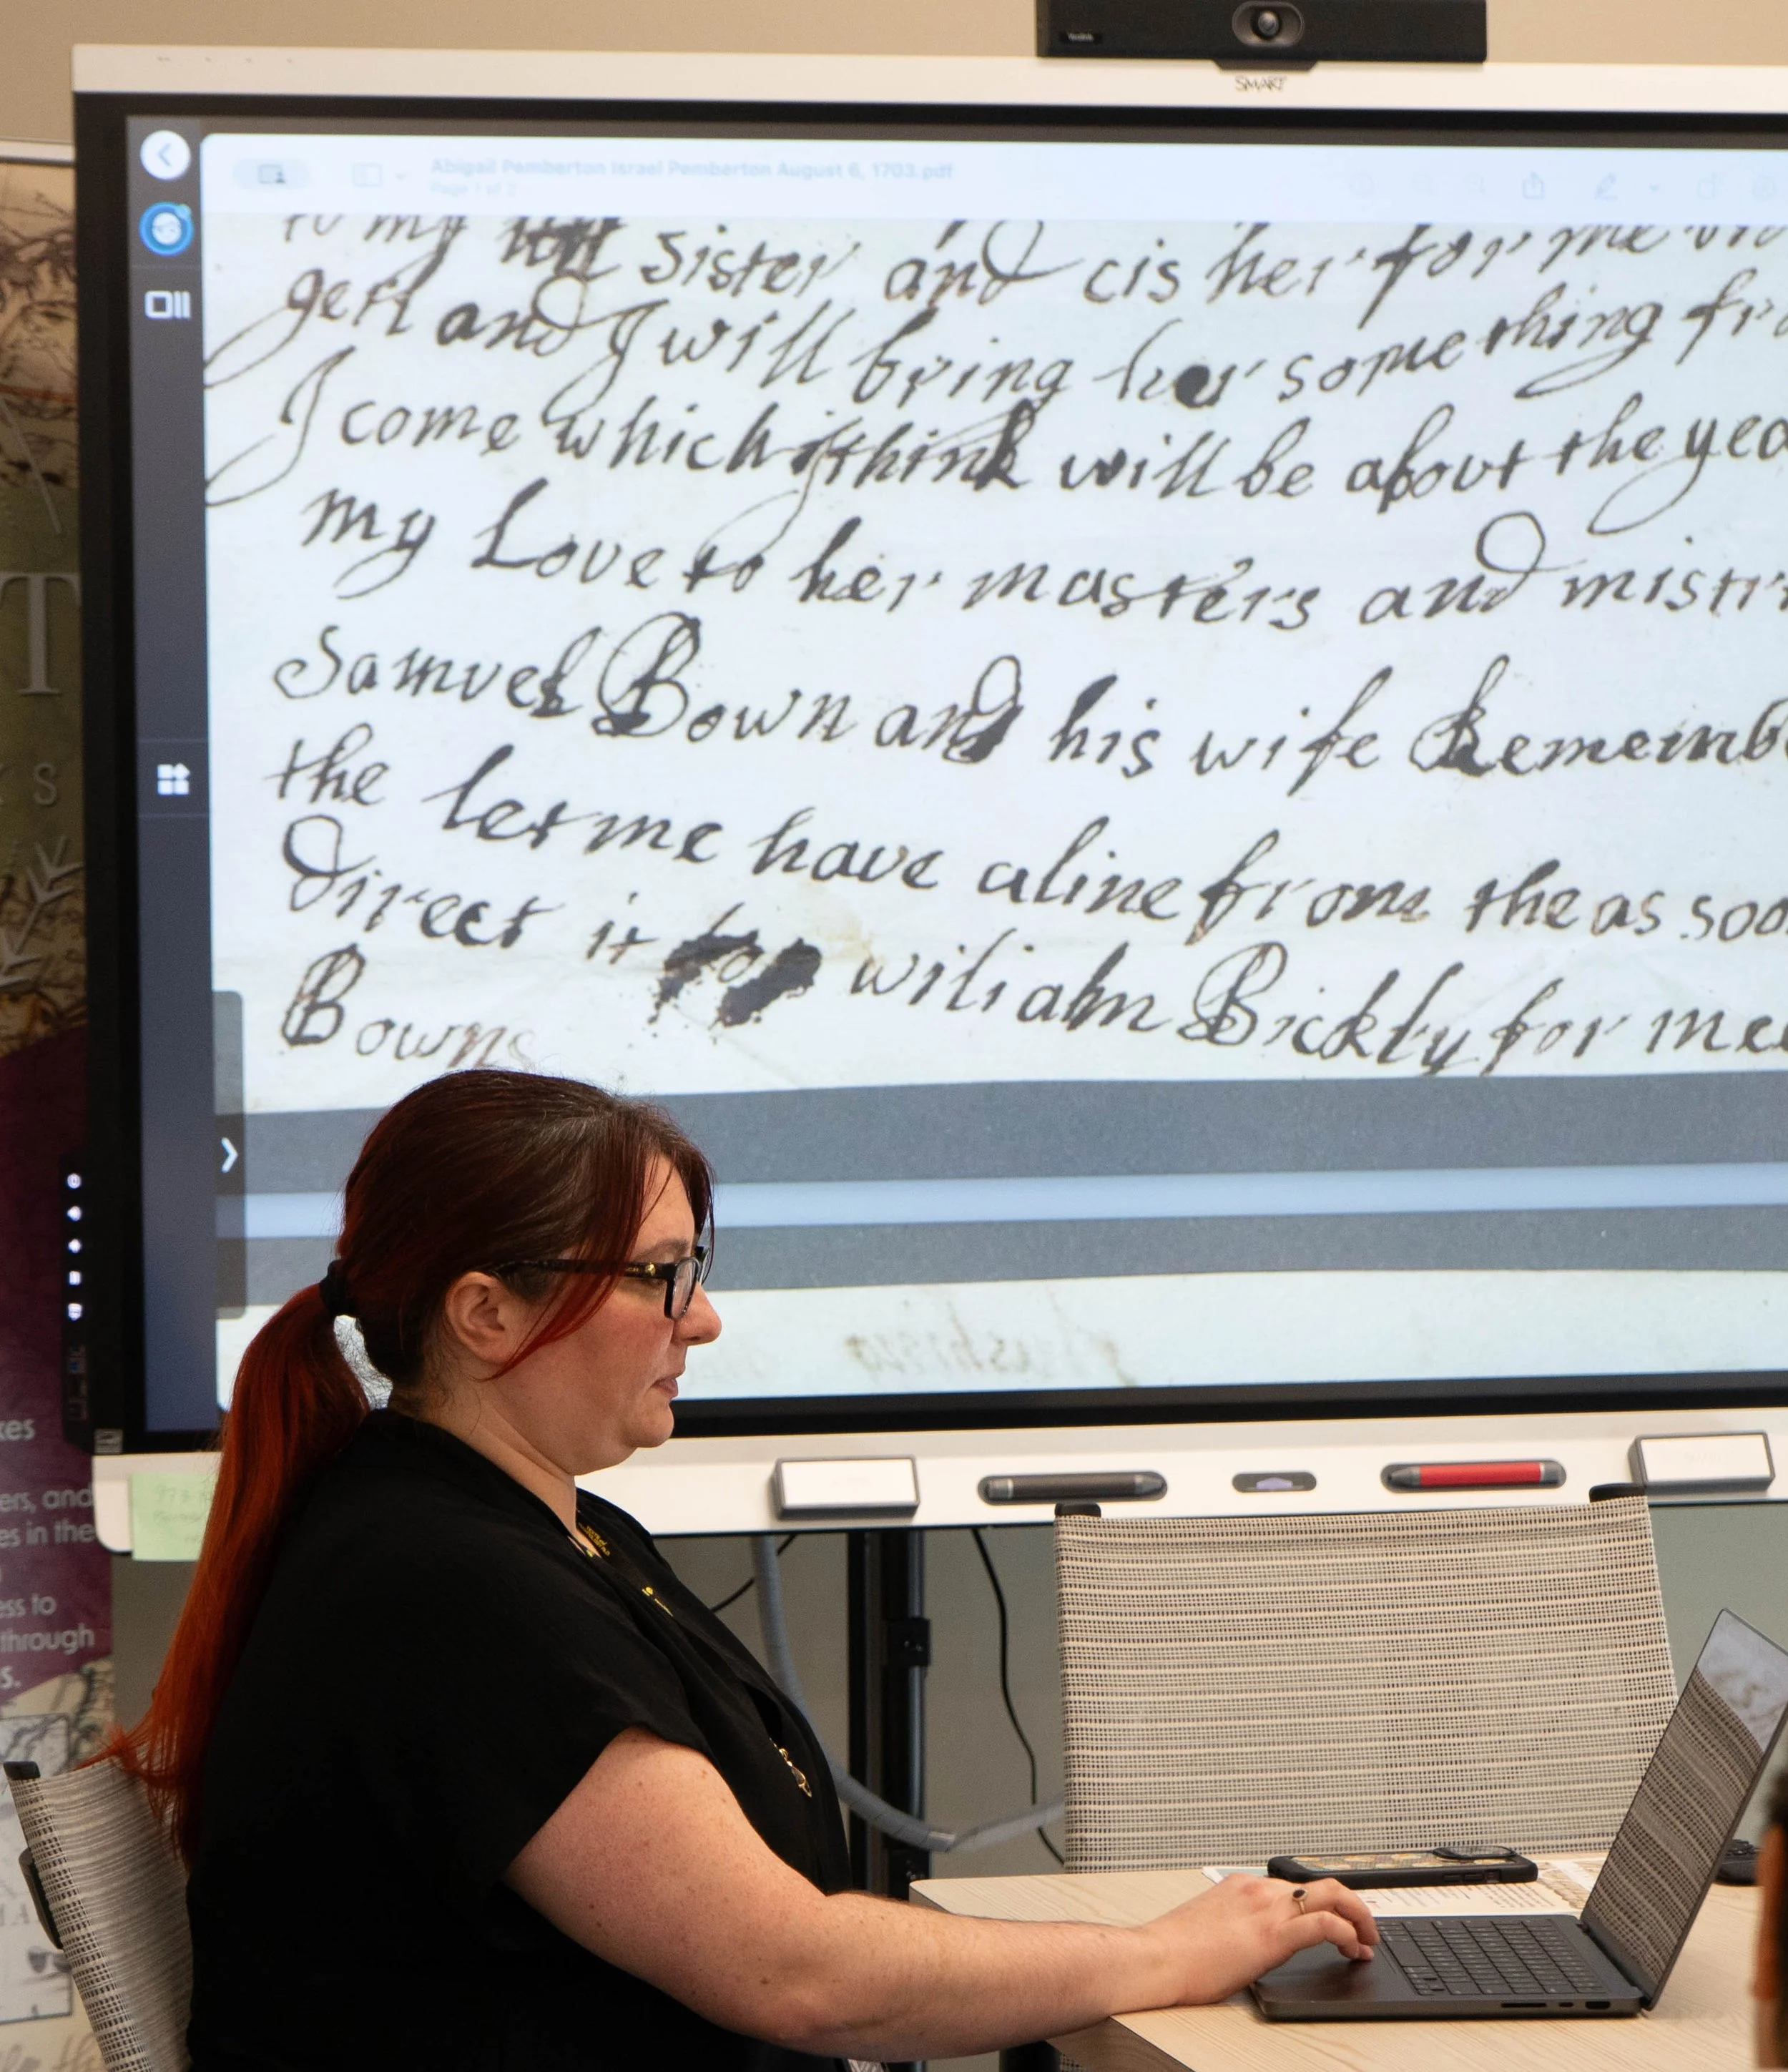 SMART
Abigail Pemberton Israel Pemberton August 6, 1703.pdf
Page 1 of 2
to my sister and cis her for me
and I will bring her something
I come which i think will be about the
my Love to her masters and
Samuel Bown and his wife
the let me have a line from the as
Direct it to wiliam Bickly for
Bowns
T
S
ers, and
es in the
ess to
through
s.